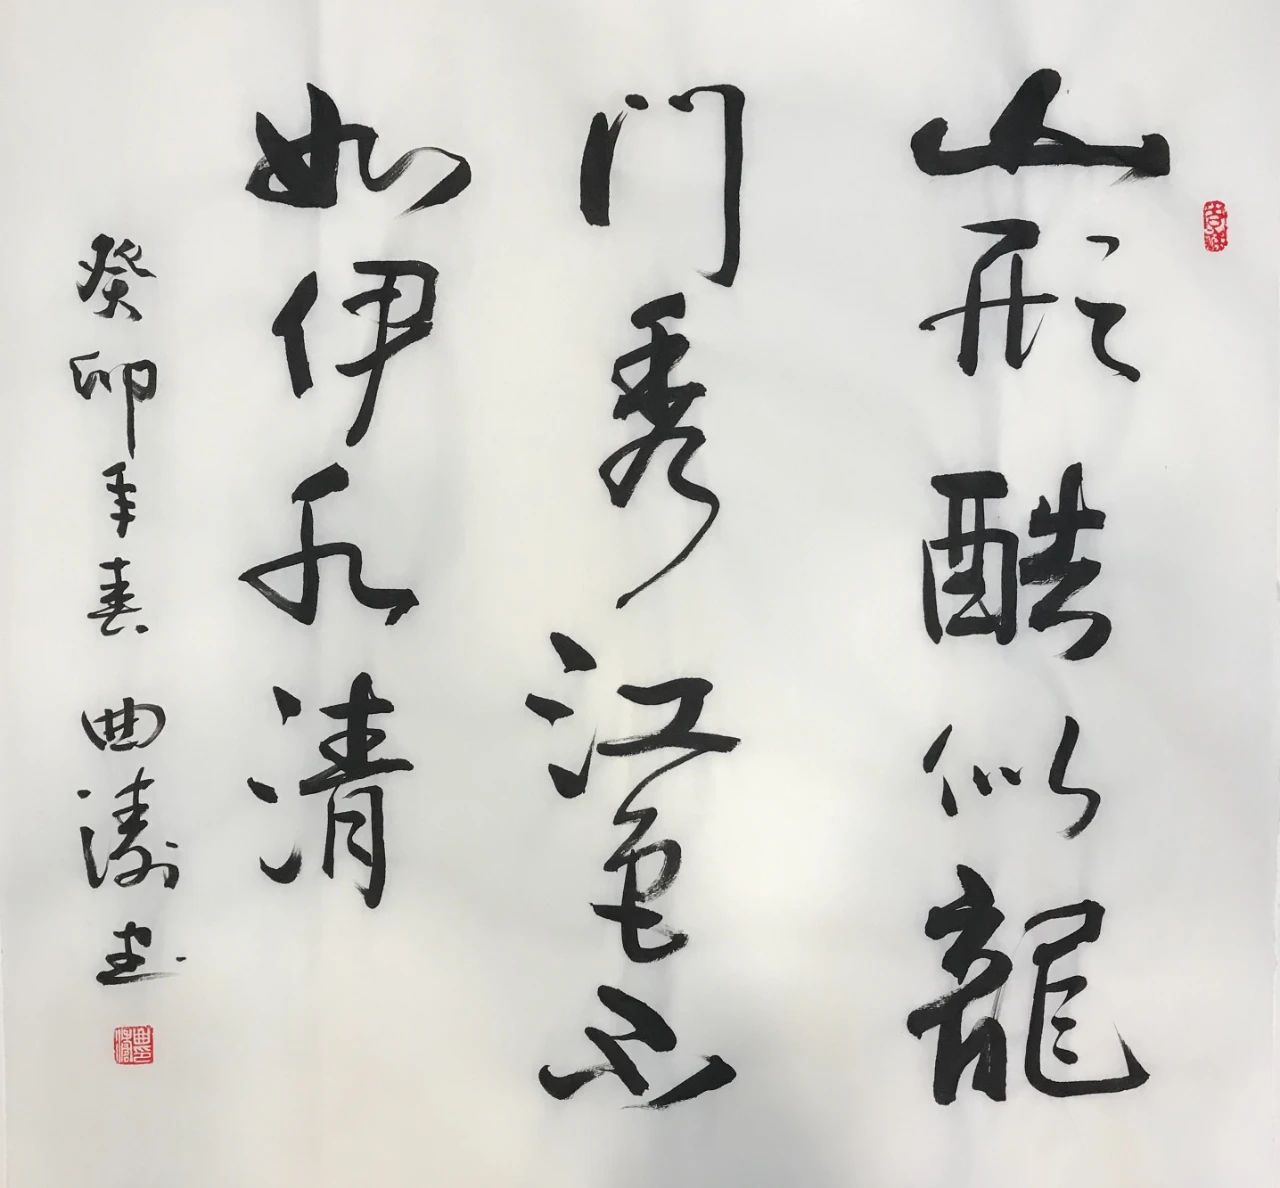 山形酷似龍
门秀江色不
如伊水清
癸卯年春 曲涛书